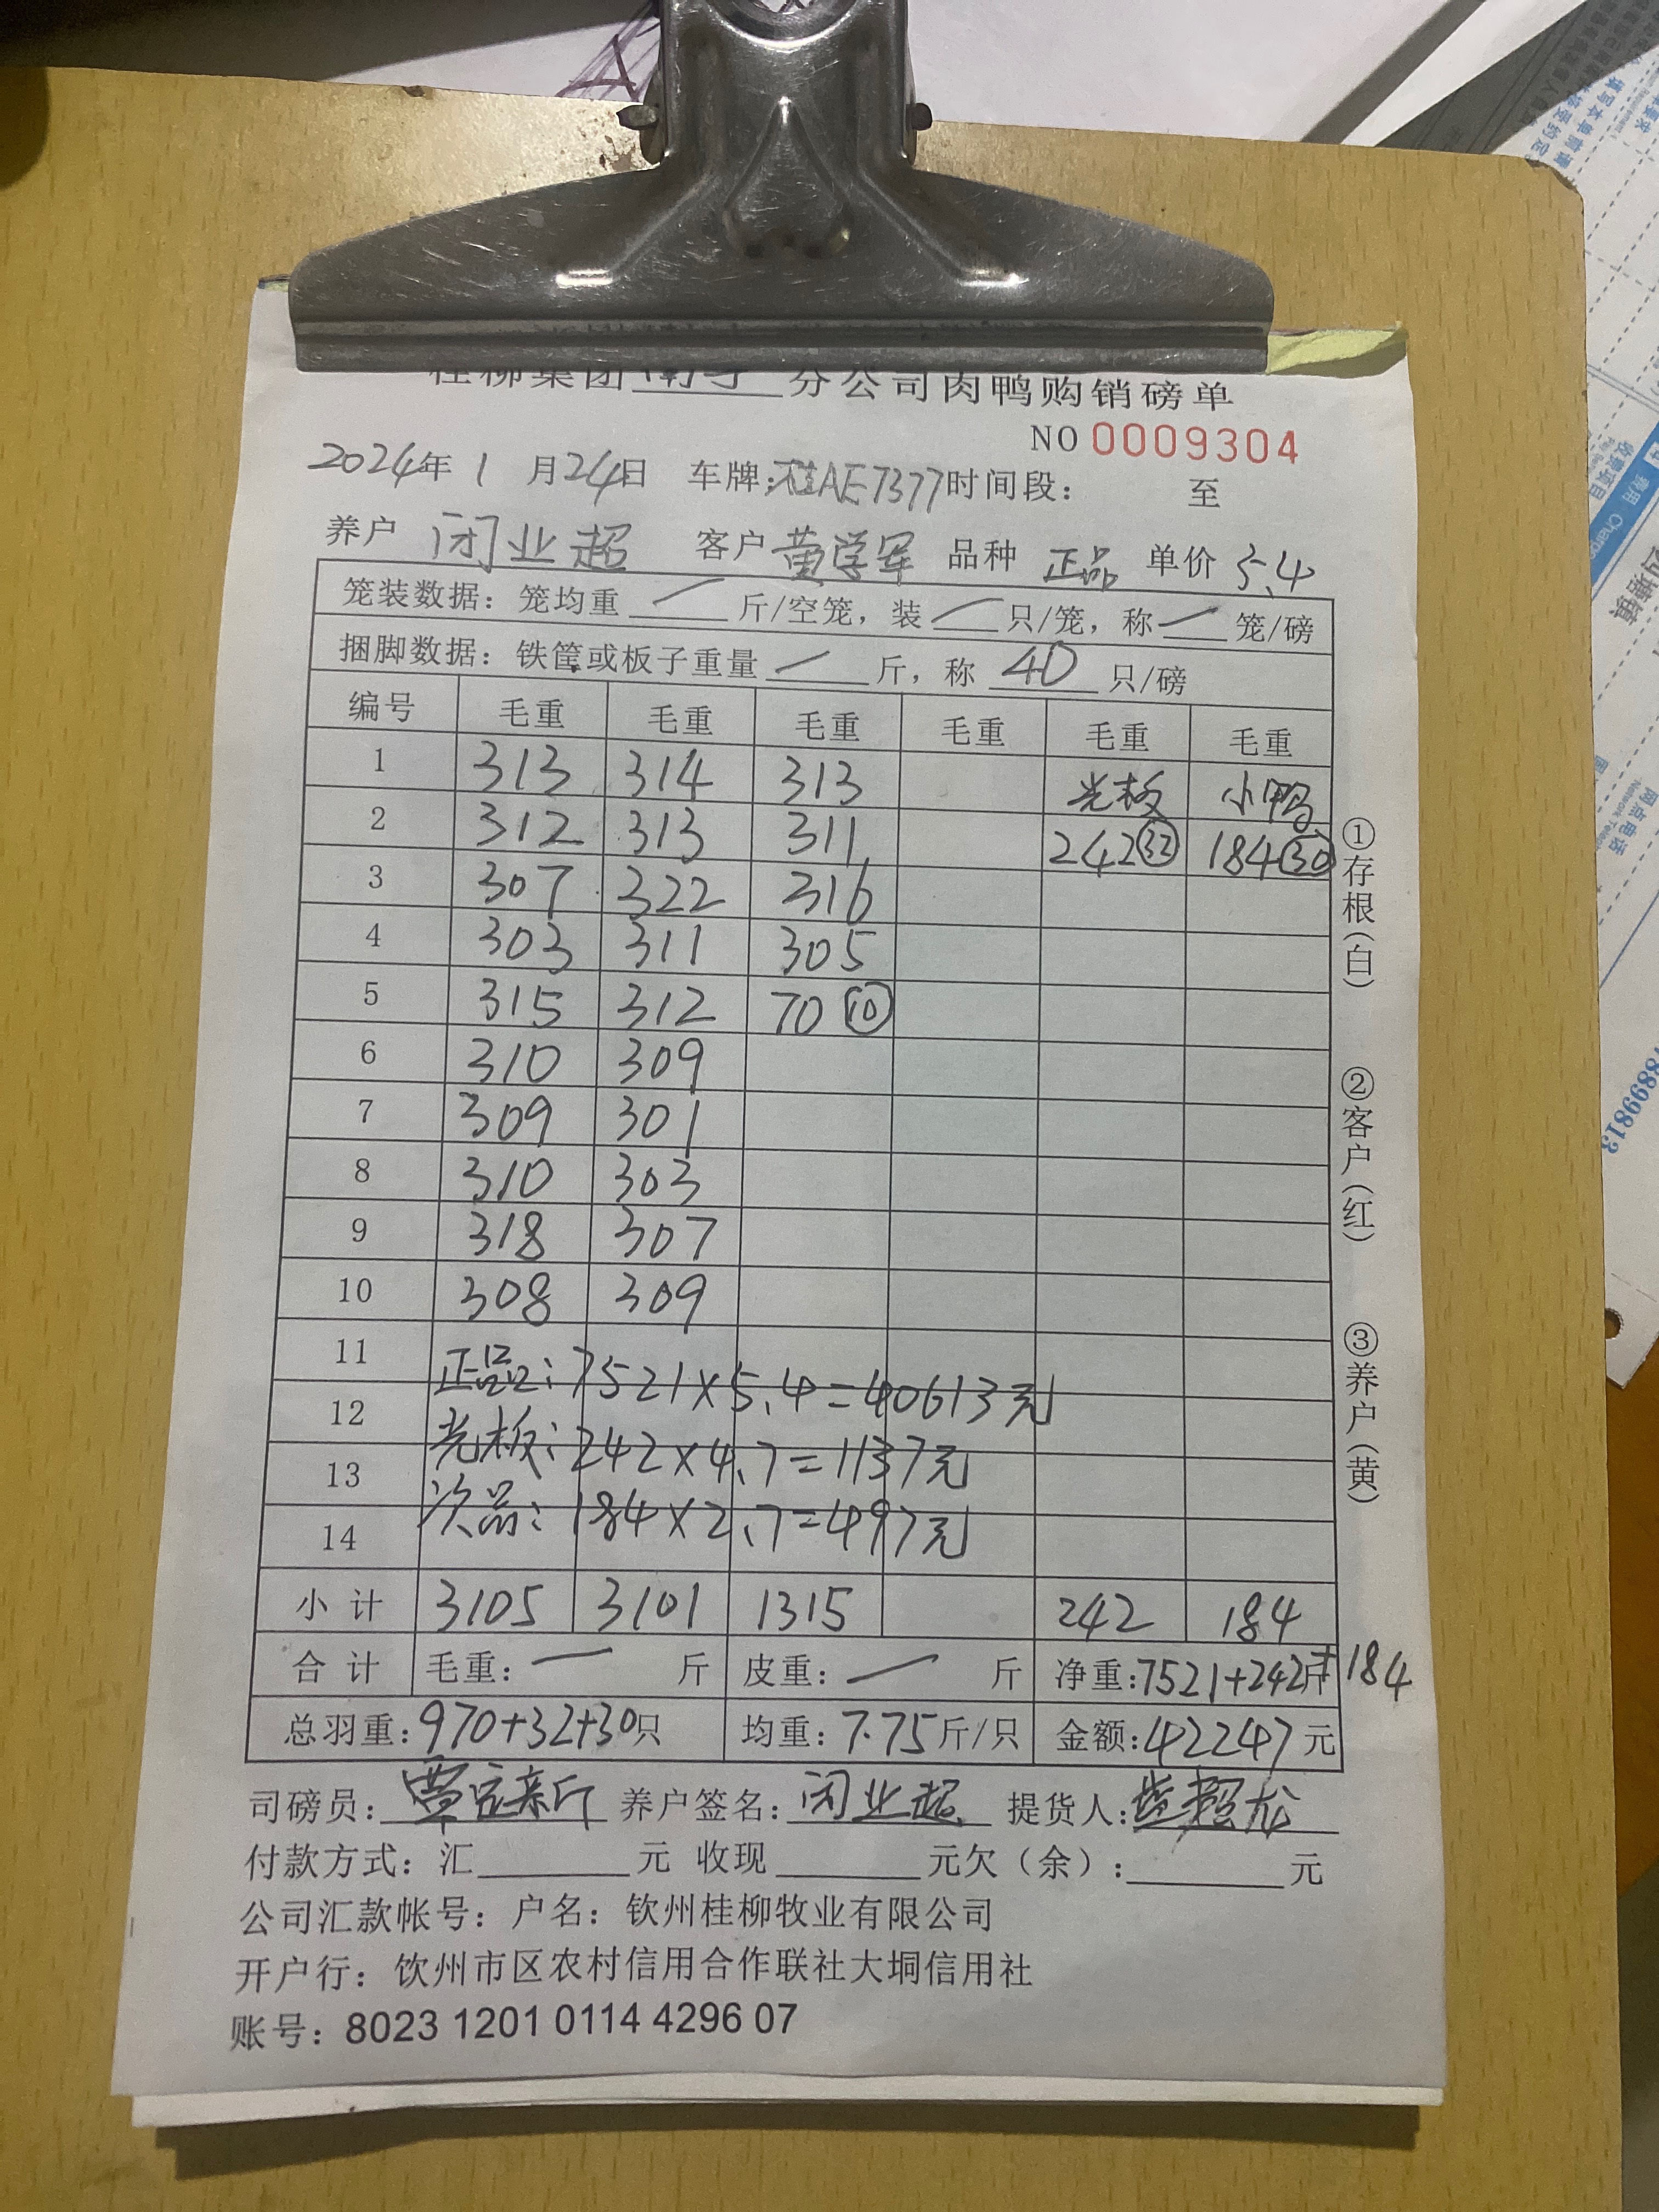 桂柳集团南宁分公司肉鸭购销磅单
NO 0009304
2024年 1 月24日 车牌:桂AE7377时间段: 至
养户 闭业超 客户 黄学军 品种 正品 单价 5.4
笼装数据: 笼均重 — 斤/空笼, 装 — 只/笼, 称 — 笼/磅
捆脚数据: 铁筐或板子重量 — 斤, 称 40 只/磅
编号 毛重 毛重 毛重 毛重 毛重 毛重
1 313 314 313 光板 小鸭
2 312 313 311 242㉜ 184㉚
3 307 322 316
4 303 311 305
5 315 312 70 ⑩
6 310 309
7 309 301
8 310 303
9 318 307
10 308 309
11
正品: 7521×5.4=40613元
12
光板: 242×4.7=1137元
13
次品: 184×2.7=497元
14
小计 3105 3101 1315 242 184
合计 毛重: — 斤 皮重: — 斤 净重:7521+242斤+184
总羽重:970+32+30只 均重: 7.75斤/只 金额:42247元
司磅员: 养户签名: 闭业超 提货人:
付款方式: 汇 元 收现 元欠(余): 元
公司汇款帐号: 户名: 钦州桂柳牧业有限公司
开户行: 钦州市区农村信用合作联社大垌信用社
账号: 8023 1201 0114 4296 07
①存根(白)
②客户(红)
③养户(黄)
8899813